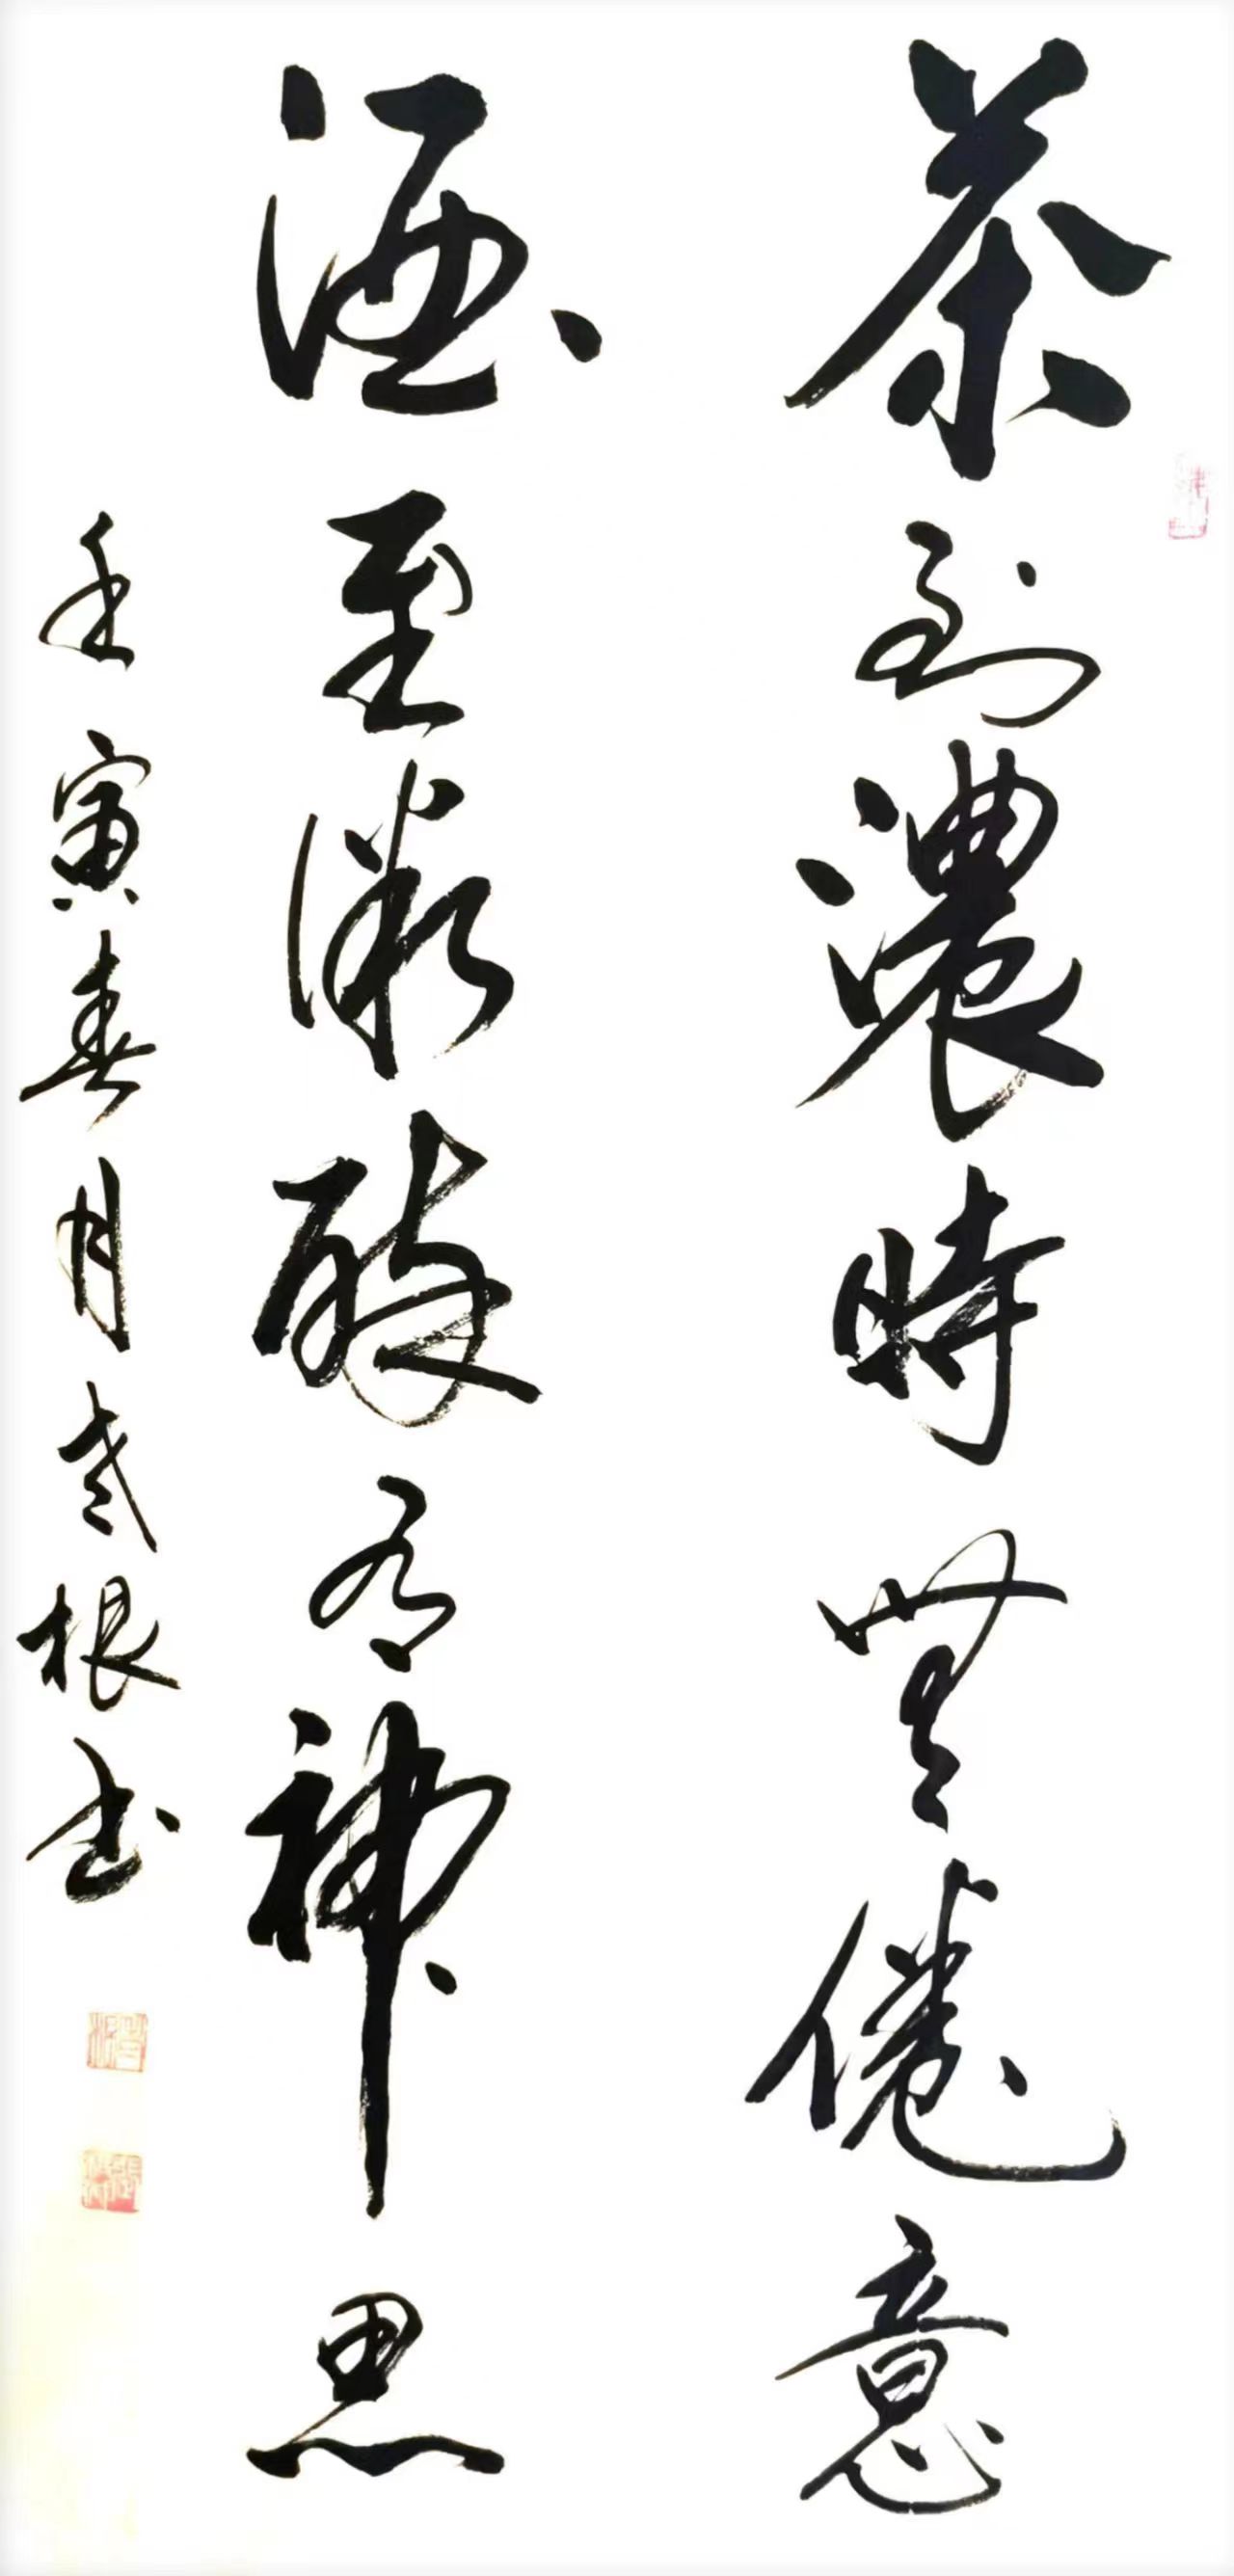 茶到濃時無倦意
酒至微醉有神思
壬寅春月老根书